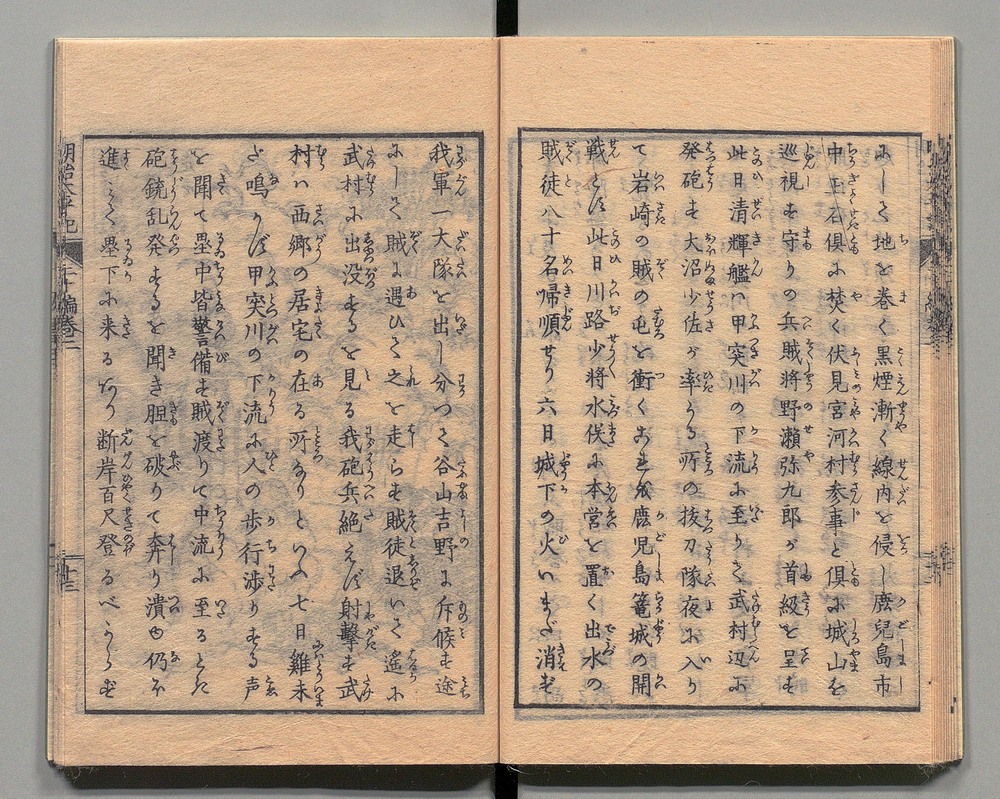 にして地を巻く黒煙漸く線内を侵し鹿兒島市
中玉石倶に焚く伏見宮河村参事と倶に城山を
巡視す守りの兵賊将野瀬弥九郎が首級を呈す
此日清輝艦ハ甲突川の下流に至りて武村辺に
発砲す大沼少佐が率うる所の抜刀隊夜に入り
て岩崎の賊の屯を衝くこれ鹿児島篭城の開
戦とす此日川路少将水俣に本営を置く出水の
賊徒八十名帰順せり六日城下の火いまだ消ず
我軍一大隊を出し分つて谷山吉野に斥候す途
にして賊に遇ひて之を走らす賊徒退いて遙に
武村に出没するを見る我砲兵絶えず射撃す武
村ハ西郷の居宅の在る所なりといふ七日雞未
だ鳴かず甲突川の下流に人の歩行渉りする声
を聞て塁中皆警備す賊渡りて中流に至るとき
砲銃乱発するを聞き胆を破りて奔り潰ゆ仍ほ
進んで塁下に来るあり断岸百尺登るべからず
明治太平記 二十編巻二 十三